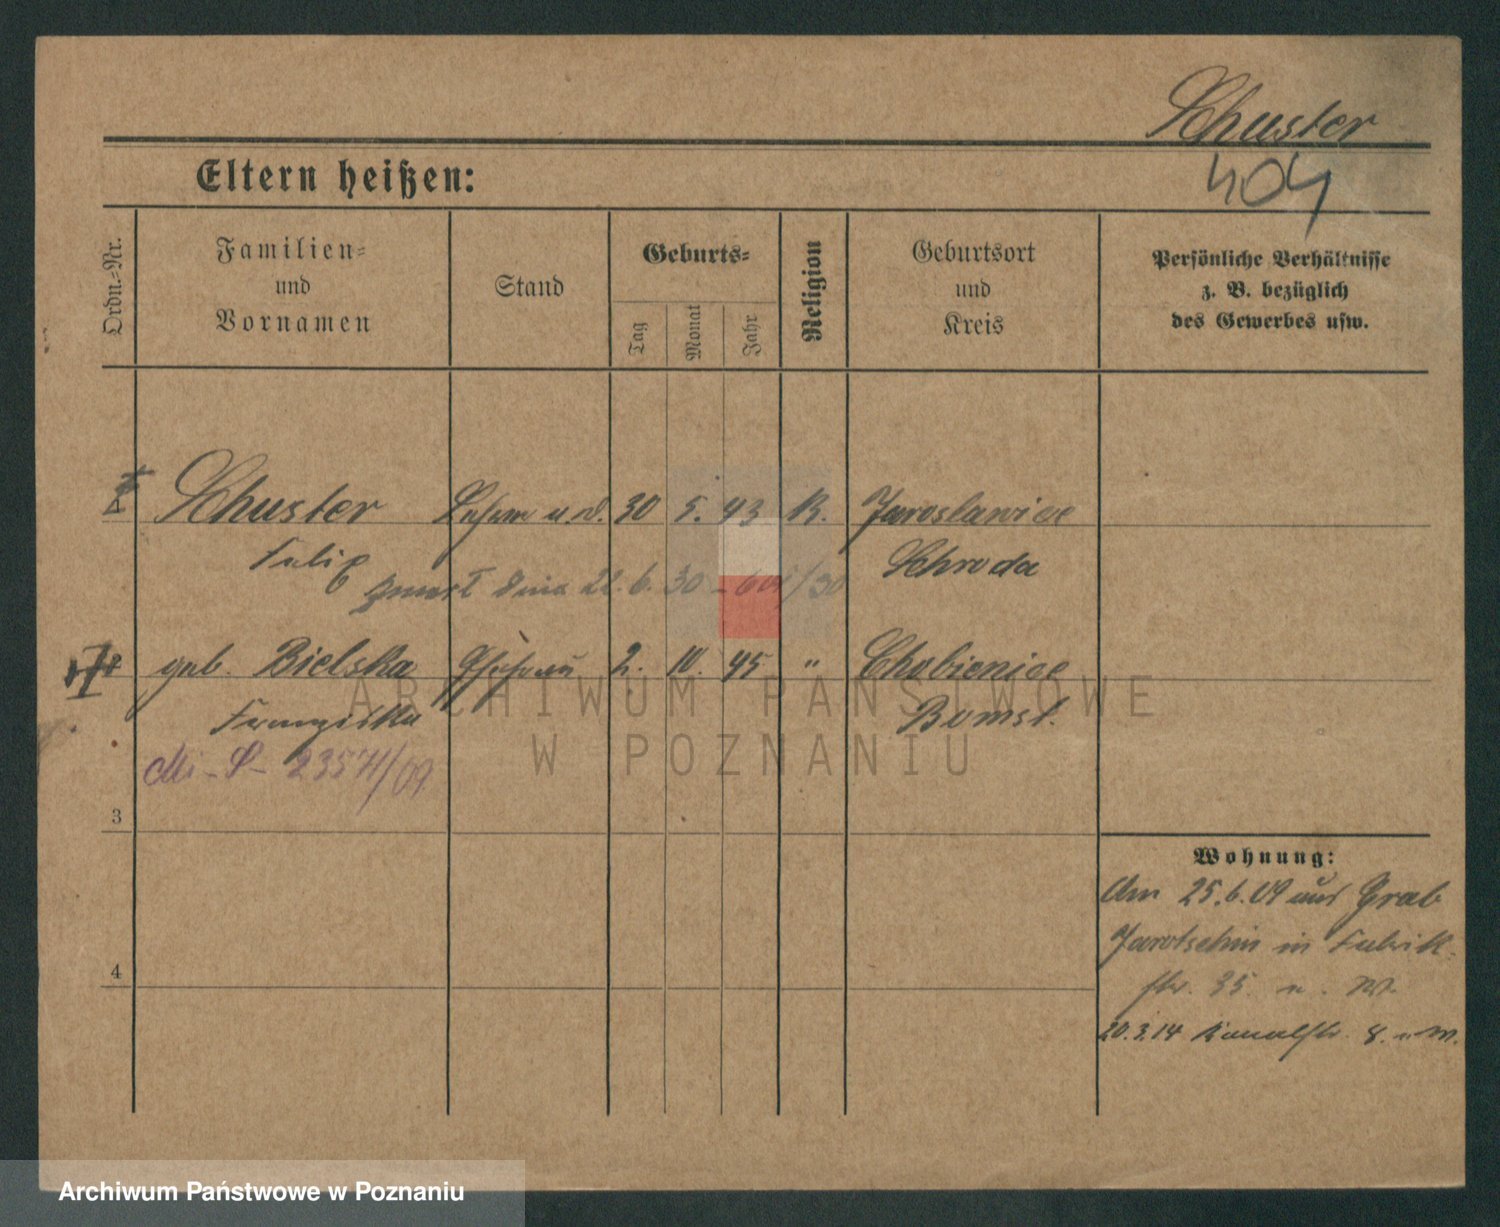 Schuster
404
Eltern heißen:
Ordn.-Nr.
Familien-
und
Vornamen
Stand
Geburts-
Tag
Monat
Jahr
Religion
Geburtsort
und
Kreis
Persönliche Verhältnisse
z. B. bezüglich
des Gewerbes usw.
Schuster 30 5. 43 K. Jaroslawice
Felix Schroda
zmarł dnia 22.6.30 - 601/30
geb. Bielska Ehefrau 2. 10. 45 " Chobienice
Franziska Bomst.
ARCHIWUM PAŃSTWOWE
W POZNANIU
3
Wohnung:
Am 25.6.09 aus Grab
Jarotschin in Fabrik-
str. 35.
4
20.3.14 Kanalstr. 8.
Archiwum Państwowe w Poznaniu